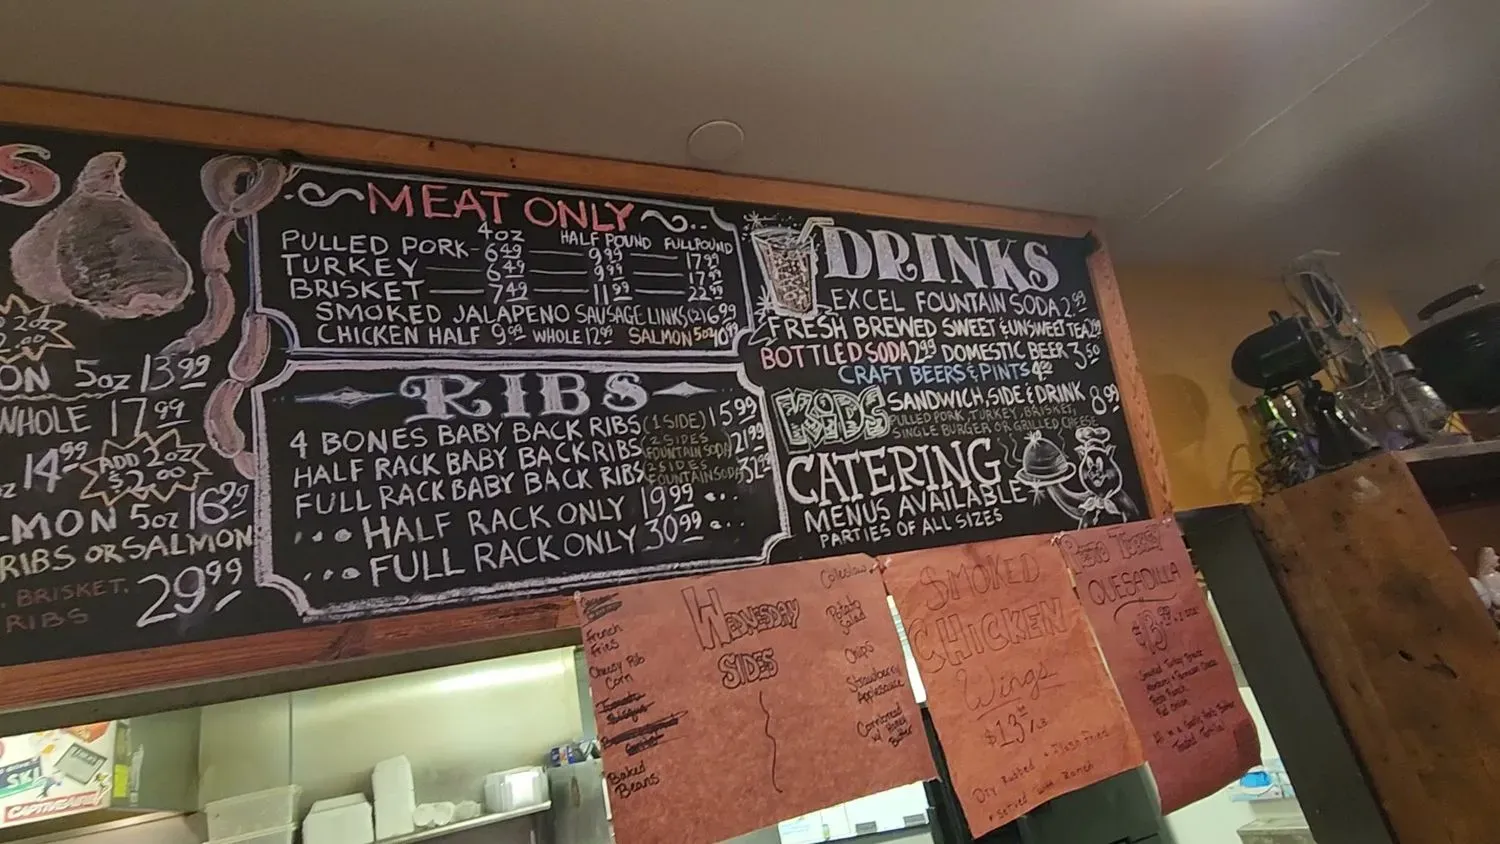 S
2oz
2.00
ON 5oz 13.99
WHOLE 17.99
14.99
ADD 2oz
$2.00
LMON 5oz 16.99
RIBS OR SALMON
BRISKET.
RIBS
29.99
MEAT ONLY
4oz HALF POUND FULL POUND
PULLED PORK - 6.49 9.99 17.99
TURKEY 6.49 9.99 17.99
BRISKET 7.49 11.99 22.99
SMOKED JALAPENO SAUSAGE LINKS (2) 6.99
CHICKEN HALF 9.99 WHOLE 12.99 SALMON 5oz 10.99
RIBS
4 BONES BABY BACK RIBS (1 SIDE) 15.99
HALF RACK BABY BACK RIBS 2 SIDES FOUNTAIN SODA 21.99
FULL RACK BABY BACK RIBS 2 SIDES FOUNTAIN SODA 32.99
... HALF RACK ONLY 19.99 ...
... FULL RACK ONLY 30.99 ...
DRINKS
EXCEL FOUNTAIN SODA 2.99
FRESH BREWED SWEET & UNSWEET TEA 2.99
BOTTLED SODA 2.99 DOMESTIC BEER 3.50
CRAFT BEERS & PINTS
KIDS
SANDWICH, SIDE & DRINK 8.99
PULLED PORK, TURKEY, BRISKET,
SINGLE BURGER OR GRILLED CHEESE
CATERING
MENUS AVAILABLE
PARTIES OF ALL SIZES
WEDNESDAY
SIDES
French
Fries
Cheesy Rib
Corn
Baked
Beans
Coleslaw
Potato
Salad
Chips
Strawberry
Applesauce
Cornbread
w/ Honey
Butter
SMOKED
CHICKEN
Wings
$13 /LB
Dry Rubbed & Flash Fried
• Served with Ranch
Pesto Turkey
QUESADILLA
Smoked Turkey Breast
Pesto Ranch
Red Onion
Toasted Tortilla
SKI
CAPTIVEAIRE